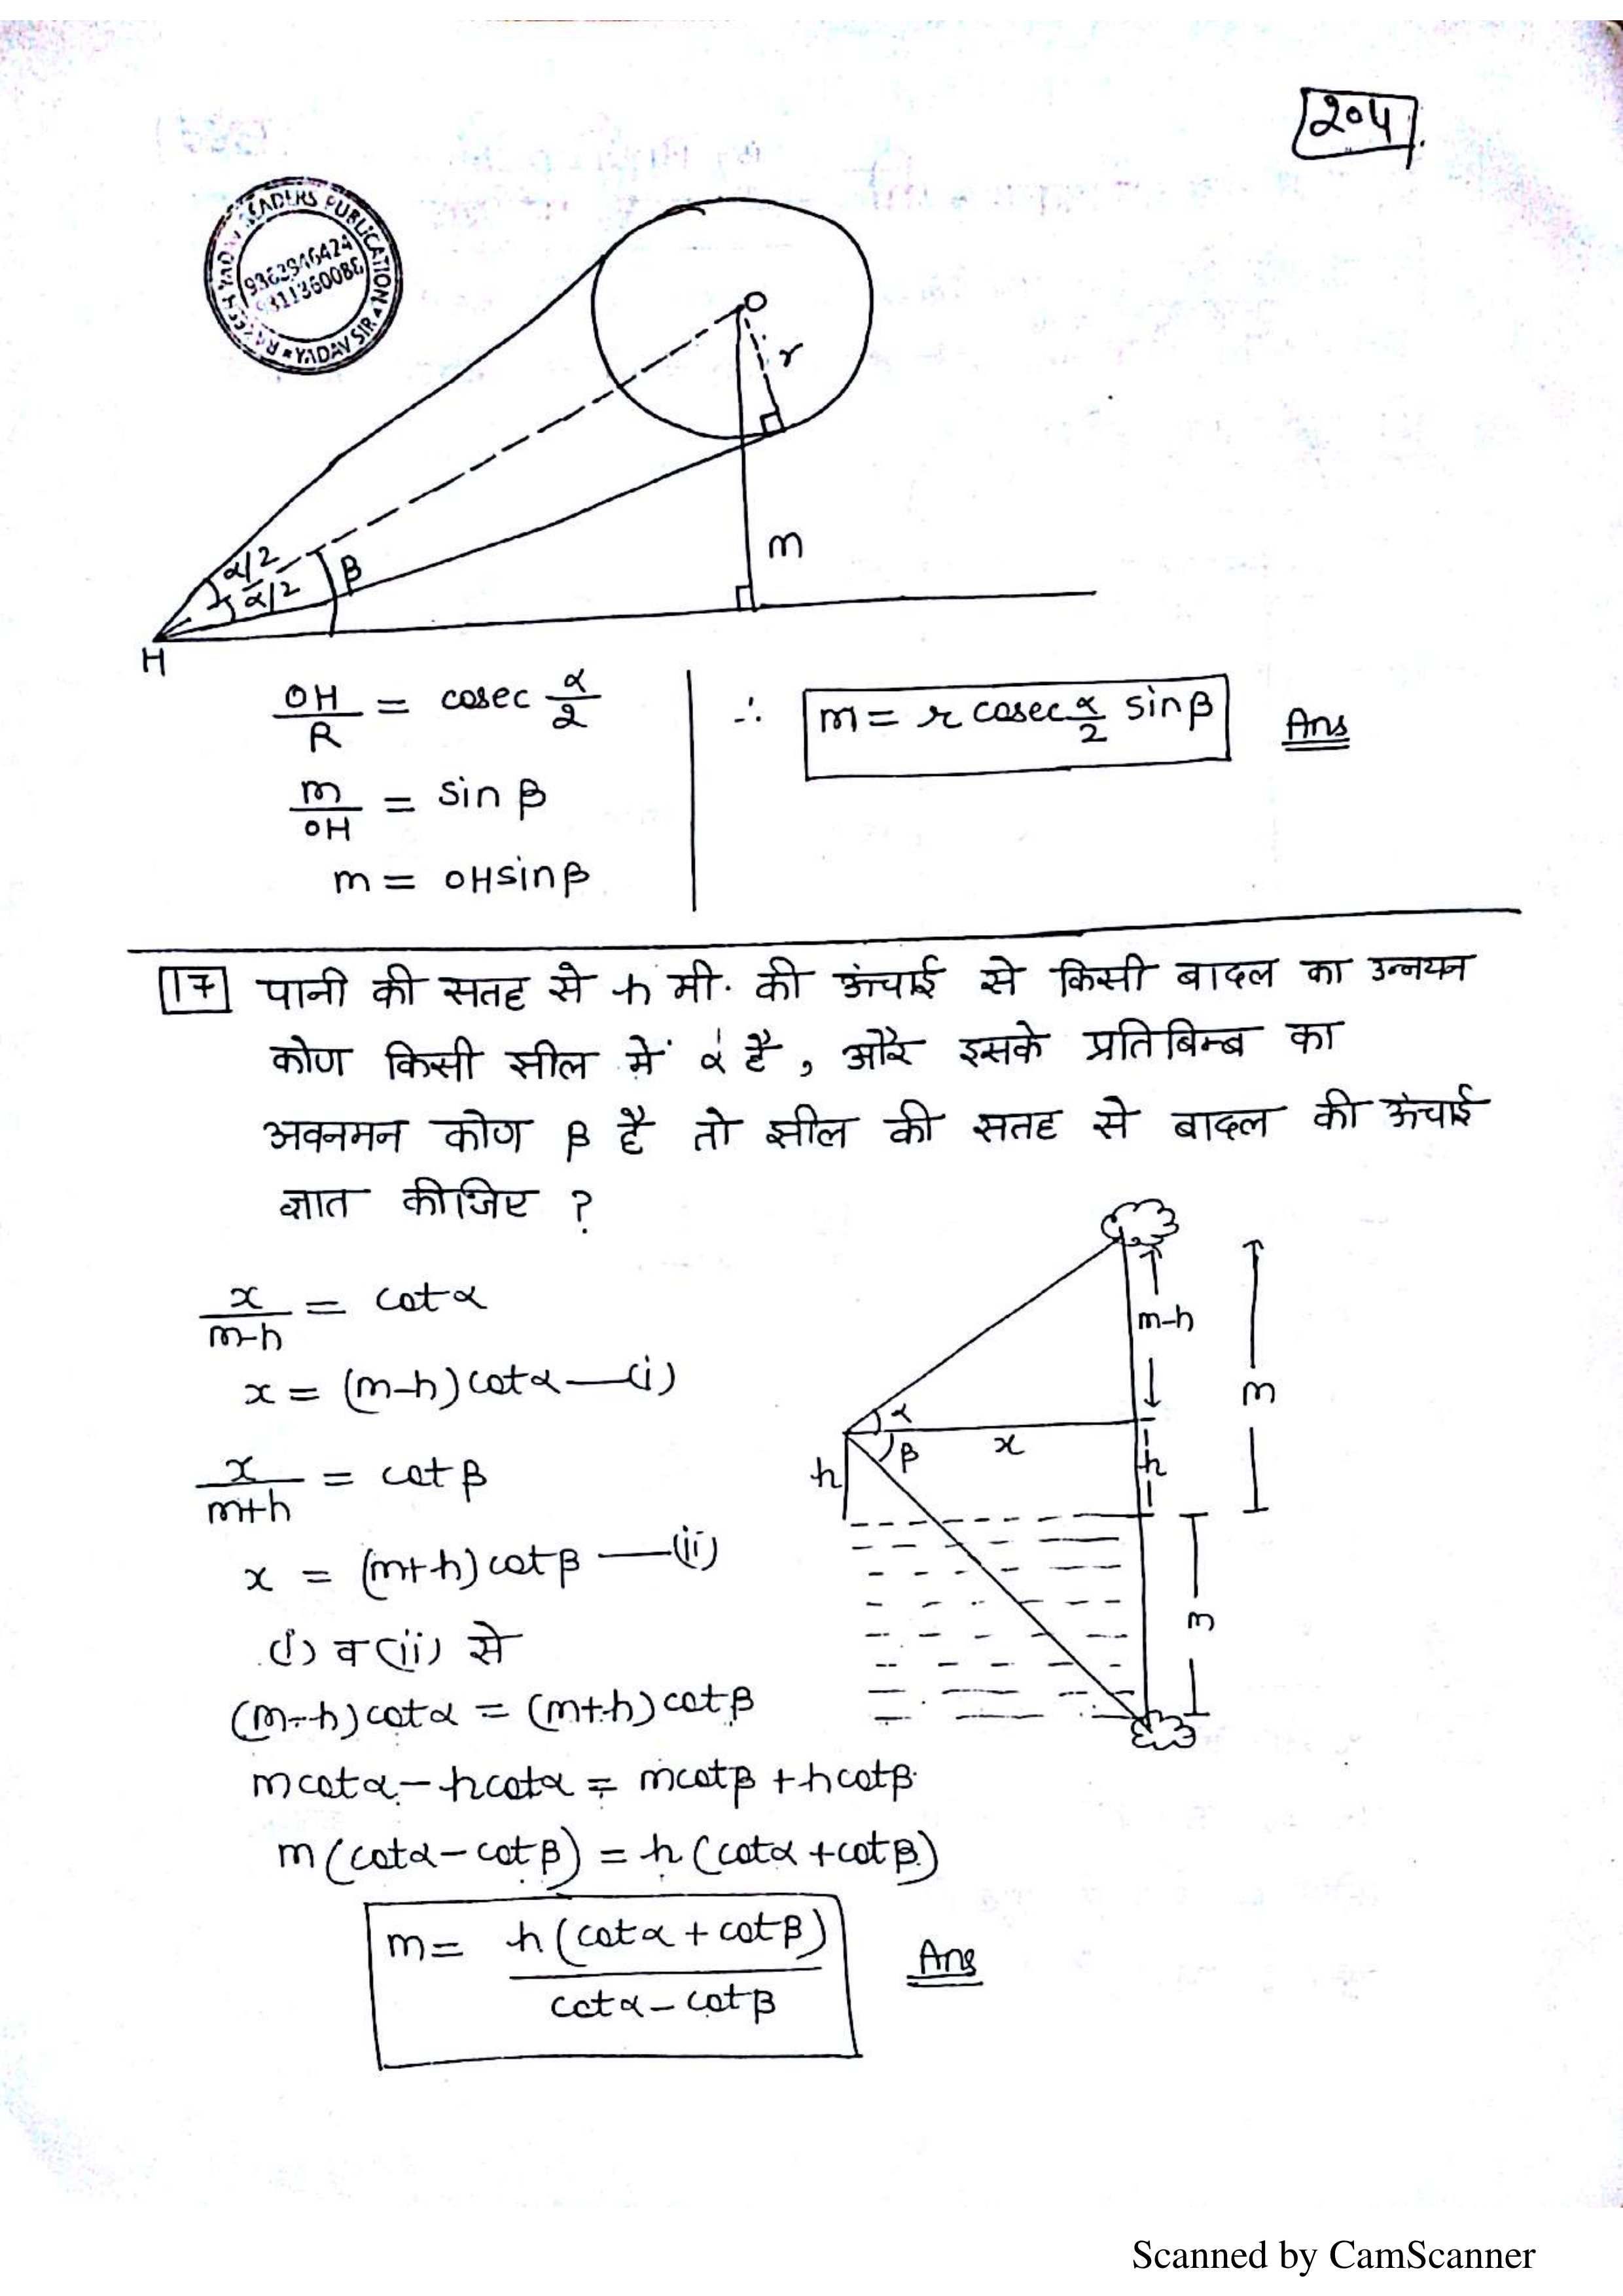 204
READERS PUBLICATION
YADAV SIR
O
r
α/2
α/2
β
m
H
OH/R = cosec α/2
m/OH = sin β
m = OH sin β
∴ m = r cosec α/2 sin β Ans
17 पानी की सतह से h मी. की ऊंचाई से किसी बादल का उन्नयन
कोण किसी झील में α है, और इसके प्रतिबिम्ब का
अवनमन कोण β है तो झील की सतह से बादल की ऊंचाई
ज्ञात कीजिए ?
x/(m-h) = cot α
x = (m-h) cot α —(i)
x/(m+h) = cot β
x = (m+h) cot β —(ii)
(i) व (ii) से
(m-h) cot α = (m+h) cot β
m cot α - h cot α = m cot β + h cot β
m (cot α - cot β) = h (cot α + cot β)
m = h (cot α + cot β) / cot α - cot β Ans
m-h
m
α
β
x
h
h
m
Scanned by CamScanner